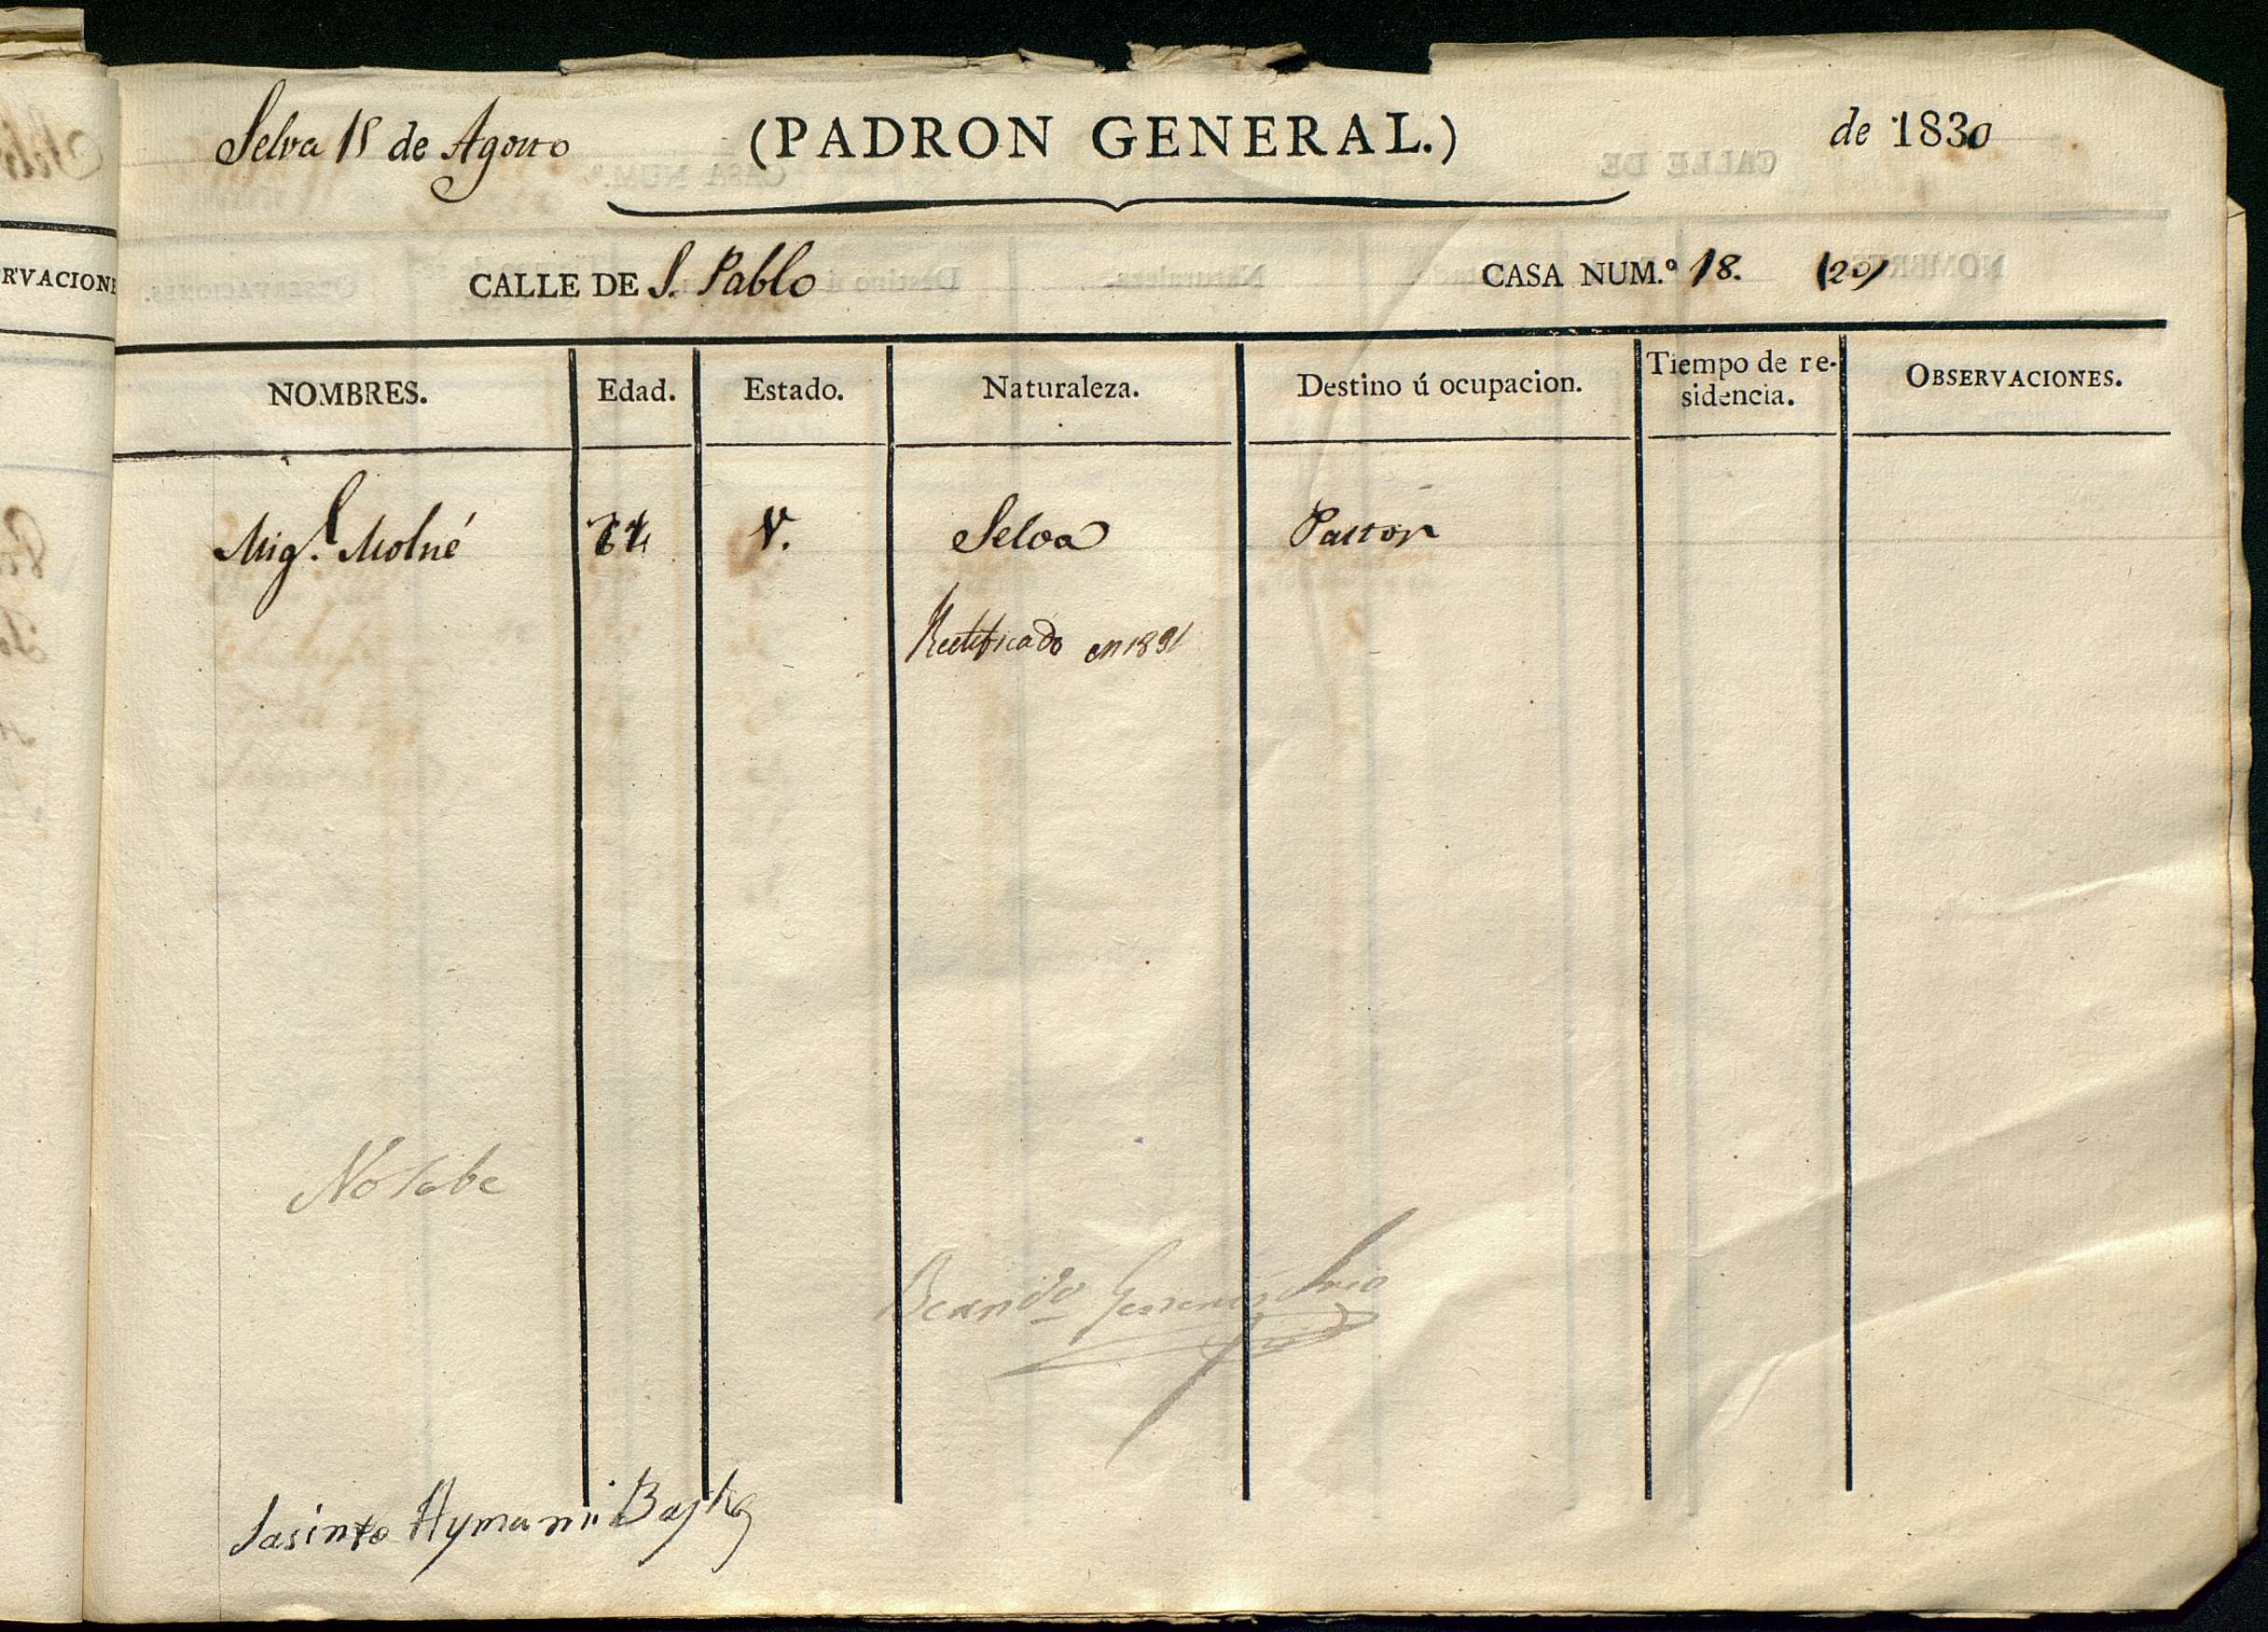 Selva 15 de Agosto (PADRON GENERAL.) de 1830
CALLE DE S. Pablo CASA NUM.º 18. (20)
NOMBRES. Edad. Estado. Naturaleza. Destino ú ocupacion. Tiempo de re-
sidencia. OBSERVACIONES.
Mig.l Molné V. Selva Pastor
Rectificado en 1831
Notabe
Jasinto Aymami Bayle